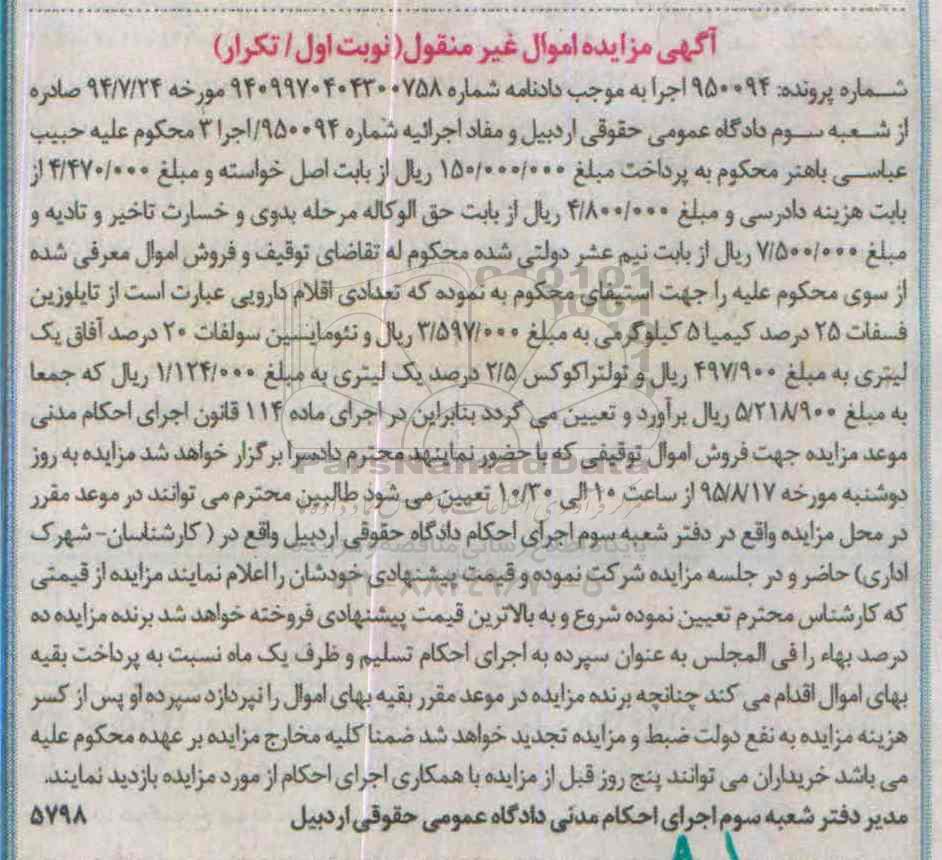 آگهی مزایده اموال غیر منقول( نوبت اول / تکرار)
شماره پرونده: ۹۵۰۰۹۴ اجرا به موجب دادنامه شماره ۹۴۰۹۹۷۰۴۰۴۳۰۰۷۵۸ مورخه ۹۴/۷/۲۴ صادره
از شعبه سوم دادگاه عمومی حقوقی اردبیل و مفاد اجرائیه شماره ۹۵۰۰۹۴/اجرا ۳ محکوم علیه حبیب
عباسی باهنر محکوم به پرداخت مبلغ ۱۵۰/۰۰۰/۰۰۰ ریال از بابت اصل خواسته و مبلغ ۴/۴۷۰/۰۰۰ از
بابت هزینه دادرسی و مبلغ ۴/۸۰۰/۰۰۰ ریال از بابت حق الوکاله مرحله بدوی و خسارت تاخیر و تادیه و
مبلغ ۷/۵۰۰/۰۰۰ ریال از بابت نیم عشر دولتی شده محکوم له تقاضای توقیف و فروش اموال معرفی شده
از سوی محکوم علیه را جهت استیفای محکوم به نموده که تعدادی اقلام دارویی عبارت است از تایلوزین
فسفات ۲۵ درصد کیمیا ۵ کیلوگرمی به مبلغ ۳/۵۹۷/۰۰۰ ریال و نئومایسین سولفات ۲۰ درصد آفاق یک
لیتری به مبلغ ۴۹۷/۹۰۰ ریال و تولتراکوکس ۲/۵ درصد یک لیتری به مبلغ ۱/۱۲۴/۰۰۰ ریال که جمعا
به مبلغ ۵/۲۱۸/۹۰۰ ریال برآورد و تعیین می گردد بنابراین در اجرای ماده ۱۱۴ قانون اجرای احکام مدنی
موعد مزایده جهت فروش اموال توقیفی که با حضور نماینهد محترم دادسرا برگزار خواهد شد مزایده به روز
دوشنبه مورخه ۹۵/۸/۱۷ از ساعت ۱۰ الی ۱۰/۳۰ تعیین می شود طالبین محترم می توانند در موعد مقرر
در محل مزایده واقع در دفتر شعبه سوم اجرای احکام دادگاه حقوقی اردبیل واقع در ( کارشناسان- شهرک
اداری) حاضر و در جلسه مزایده شرکت نموده و قیمت پیشنهادی خودشان را اعلام نمایند مزایده از قیمتی
که کارشناس محترم تعیین نموده شروع و به بالاترین قیمت پیشنهادی فروخته خواهد شد برنده مزایده ده
درصد بهاء را فی المجلس به عنوان سپرده به اجرای احکام تسلیم و ظرف یک ماه نسبت به پرداخت بقیه
بهای اموال اقدام می کند چنانچه برنده مزایده در موعد مقرر بقیه بهای اموال را نپردازد سپرده او پس از کسر
هزینه مزایده به نفع دولت ضبط و مزایده تجدید خواهد شد ضمنا کلیه مخارج مزایده بر عهده محکوم علیه
می باشد خریداران می توانند پنج روز قبل از مزایده با همکاری اجرای احکام از مورد مزایده بازدید نمایند.
مدیر دفتر شعبه سوم اجرای احکام مدنی دادگاه عمومی حقوقی اردبیل ۵۷۹۸
ParsNamadData